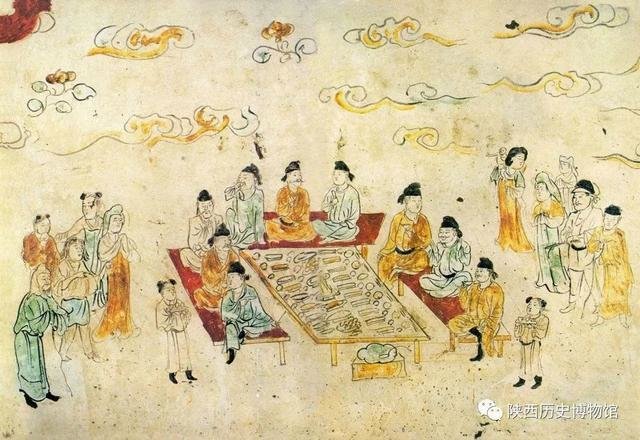 陕西历史博物馆